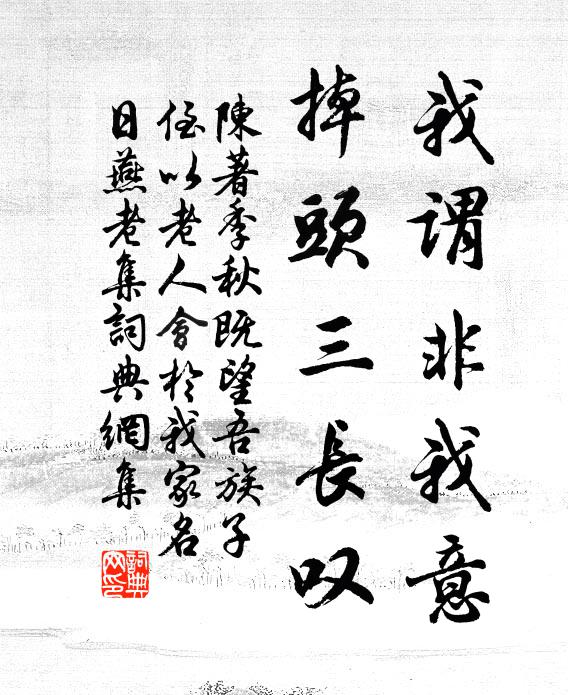 我謂非我意
掉頭三長叹
陳著季秋既望吾族子
侄以老人會於我家名
日燕老集詞典網集
詞典網印